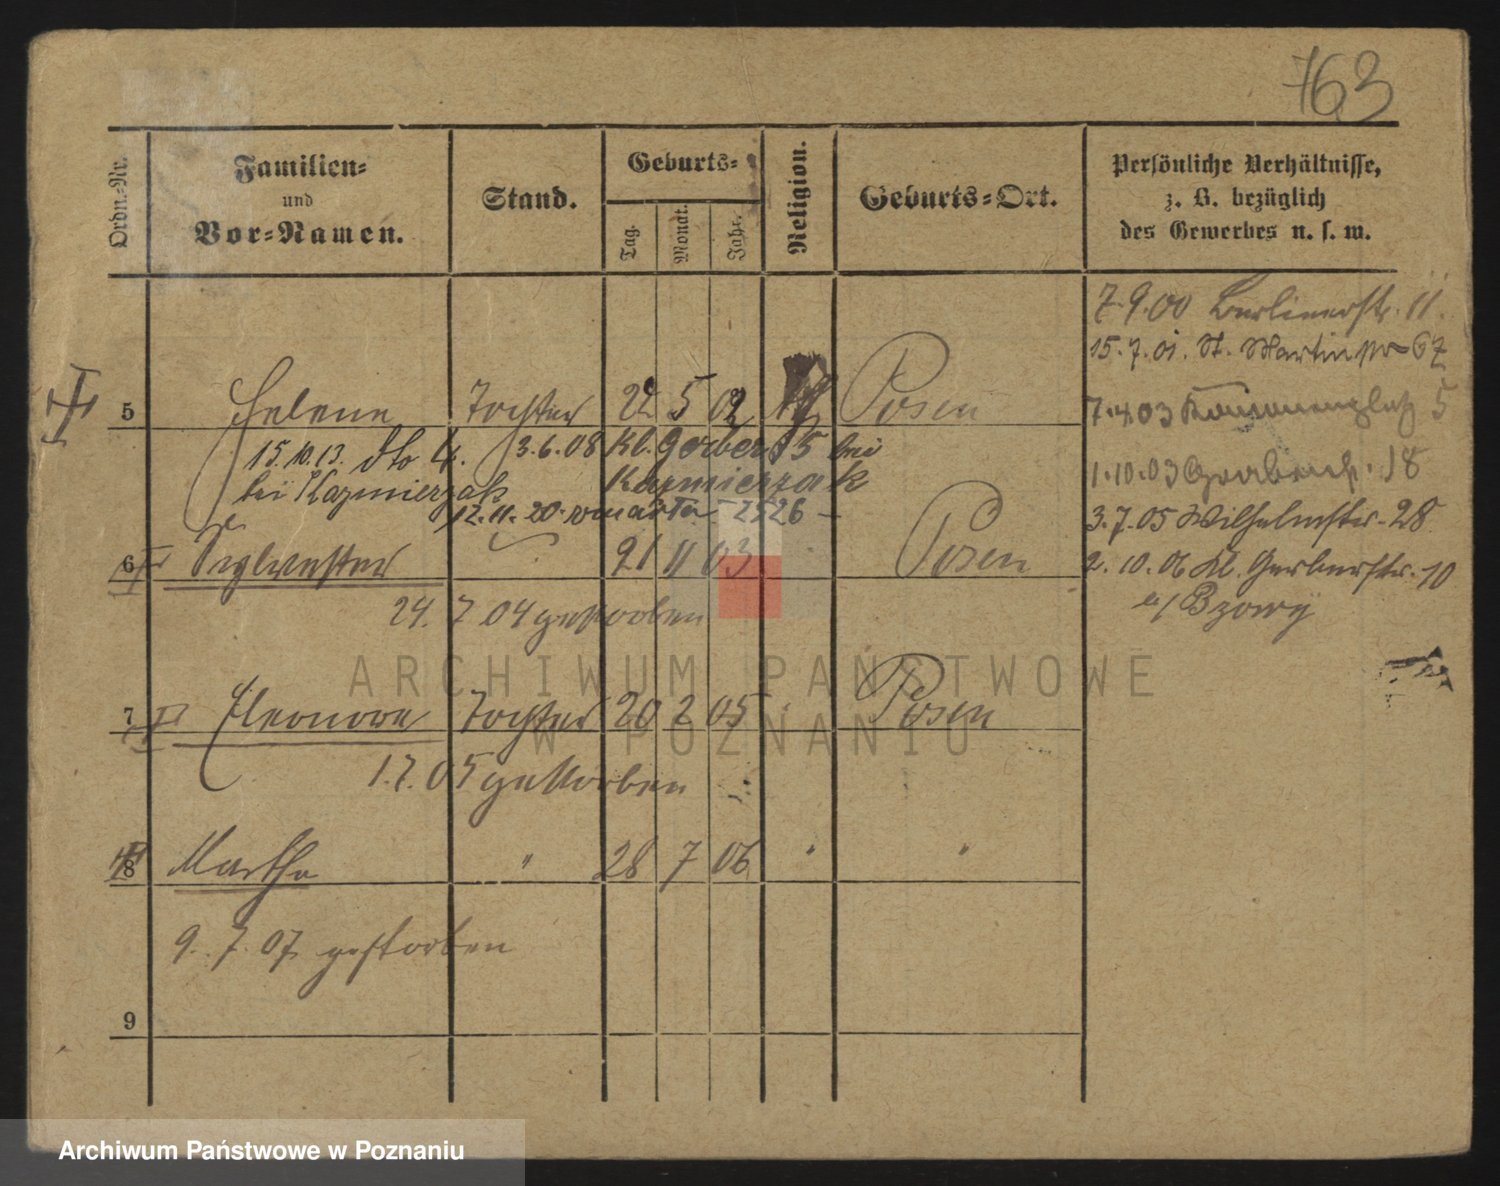 763
Ordn.-Nr.
Familien-
und
Vor-Namen.
Stand.
Geburts-
Tag.
Monat.
Jahr.
Religion.
Geburts-Ort.
Persönliche Verhältnisse,
z. B. bezüglich
des Gewerbes u. s. w.
7.9.00 Berlinerstr. 11.
15.7.01. St. Martin 67
5 Helene Tochter 22 5 02 Posen
7.4.03 5
15.10.13. dto 4. 3.6.08 Kl. Gerber 5 bei
bei Kazmierzak Kazmierzak
1.10.03 18
12.11.20. 2526
3.7.05 Wilhelmstr. 28
6 Sylvester 21 11 03 Posen
2.10.06 Kl. Gerberstr. 10
b/ Bzowy
24. 7 04 gestorben
ARCHIWUM PAŃSTWOWE
W POZNANIU
7 Eleonore Tochter 20 2 05 Posen
1.7.05 gestorben
8 Martha " 28 7 06 " "
9. 7. 07 gestorben
9
Archiwum Państwowe w Poznaniu